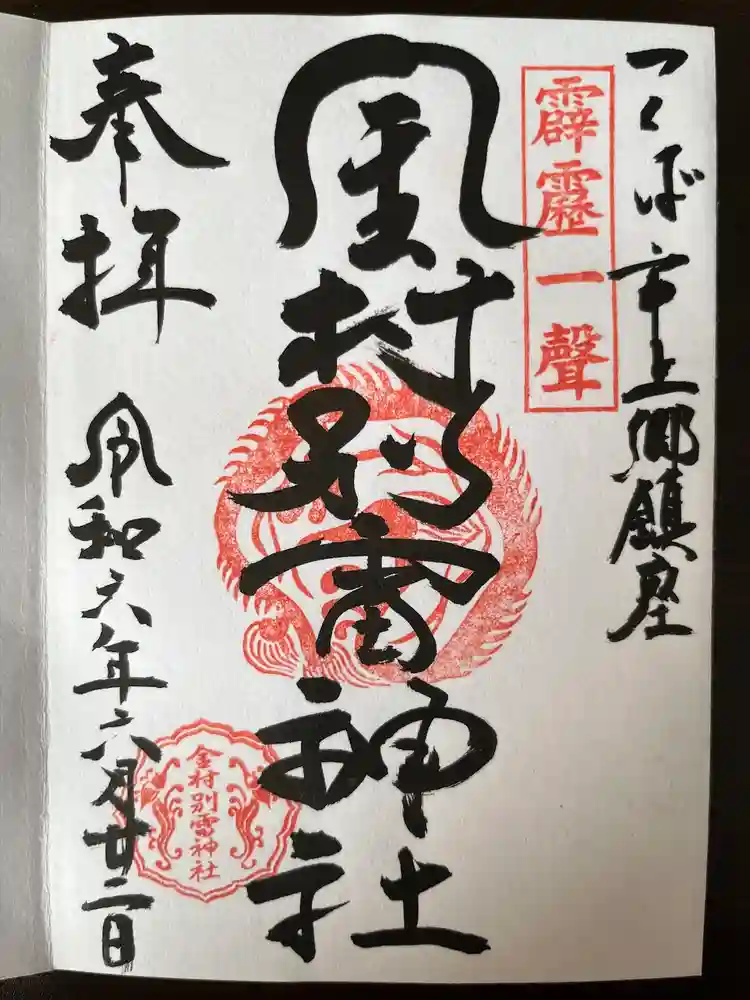 つくば市上郷鎮座
霹靂一聲
金村別雷神社
金村別雷神社
奉拝
令和六年六月廿二日